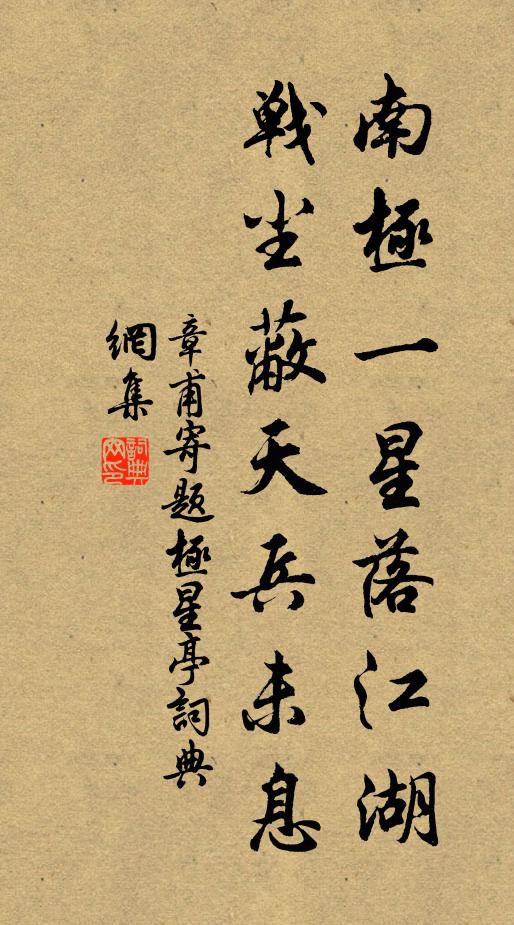 南極一星落江湖
戰尘蔽天兵未息
章甫寄题極星亭詞典
網集
詞典
网印